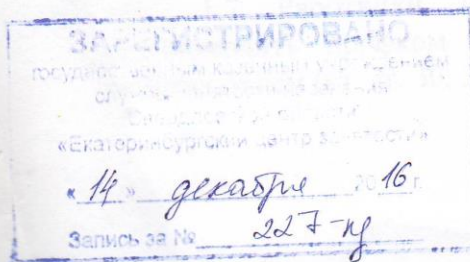 ЗАРЕГИСТРИРОВАНО
государственным казенным учреждением
службы занятости населения
Свердловской области
«Екатеринбургский центр занятости»
«14» декабря 2016 г.
Запись за № 227-